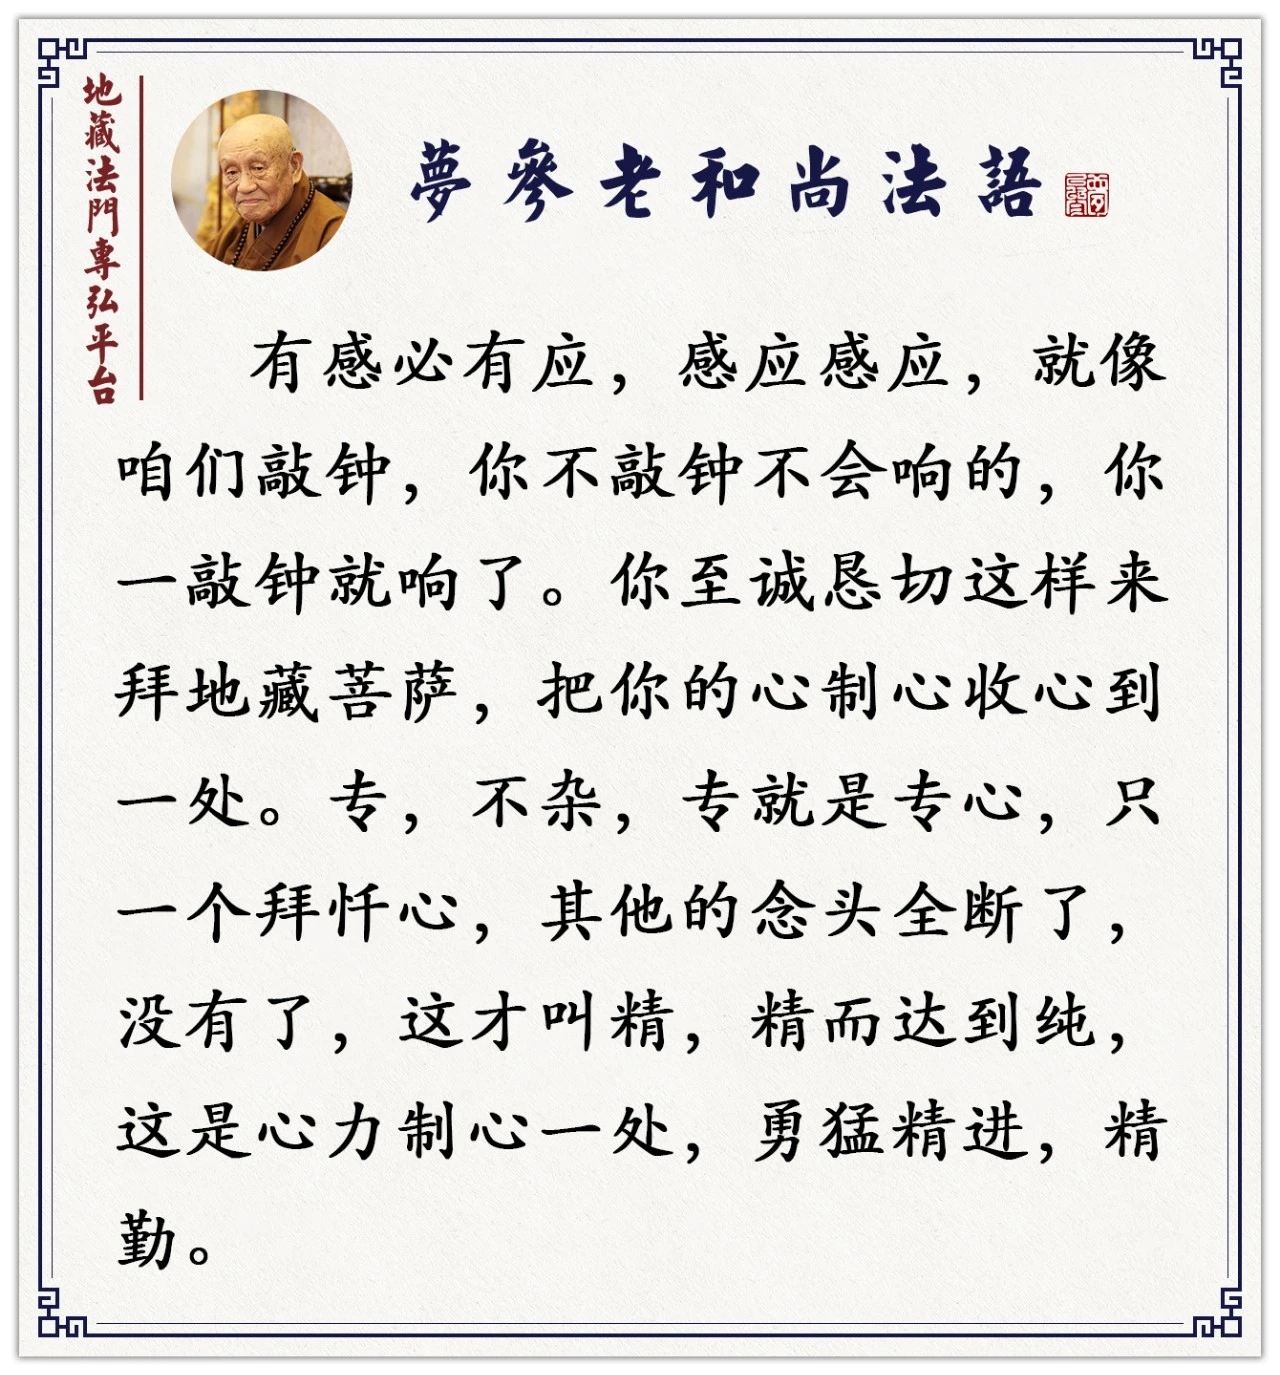 地藏法門專弘平台
夢參老和尚法語
有感必有应，感应感应，就像
咱们敲钟，你不敲钟不会响的，你
一敲钟就响了。你至诚恳切这样来
拜地藏菩萨，把你的心制心收心到
一处。专，不杂，专就是专心，只
一个拜忏心，其他的念头全断了，
没有了，这才叫精，精而达到纯，
这是心力制心一处，勇猛精进，精
勤。